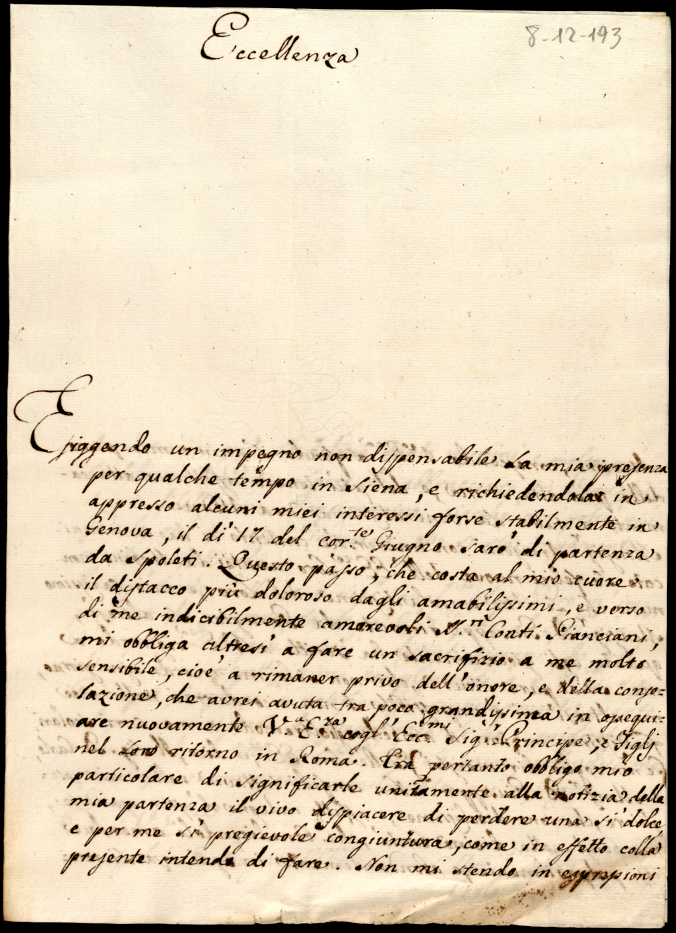 8-12-193
Eccellenza
Esiggendo un impegno non dispensabile la mia presenza
per qualche tempo in Siena, e richiedendola in
appresso alcuni miei interessi forse stabilmente in
Genova, il dì 17 del cor.te Giugno sarò di partenza
da Spoleti. Questo passo, che costa al mio cuore
il distacco più doloroso dagli amabilissimi, e verso
di me indicibilmente amorevoli SS.ri Conti Pianciani,
mi obbliga altresì a fare un sacrifizio a me molto
sensibile, cioè a rimaner privo dell'onore, e della conso=
lazione, che avrei avuta tra poco grandissima in ossequi=
are nuovamente V.a E.za cogl'Ecc.mi Sig.i Principe, e Figlj
nel Loro ritorno in Roma. Era pertanto obbligo mio
particolare di significarle unitamente alla notizia della
mia partenza il vivo dispiacere di perdere una sì dolce
e per me sì pregievole congiuntura, come in effetto colla
presente intendo di fare. Non mi stendo in espressioni